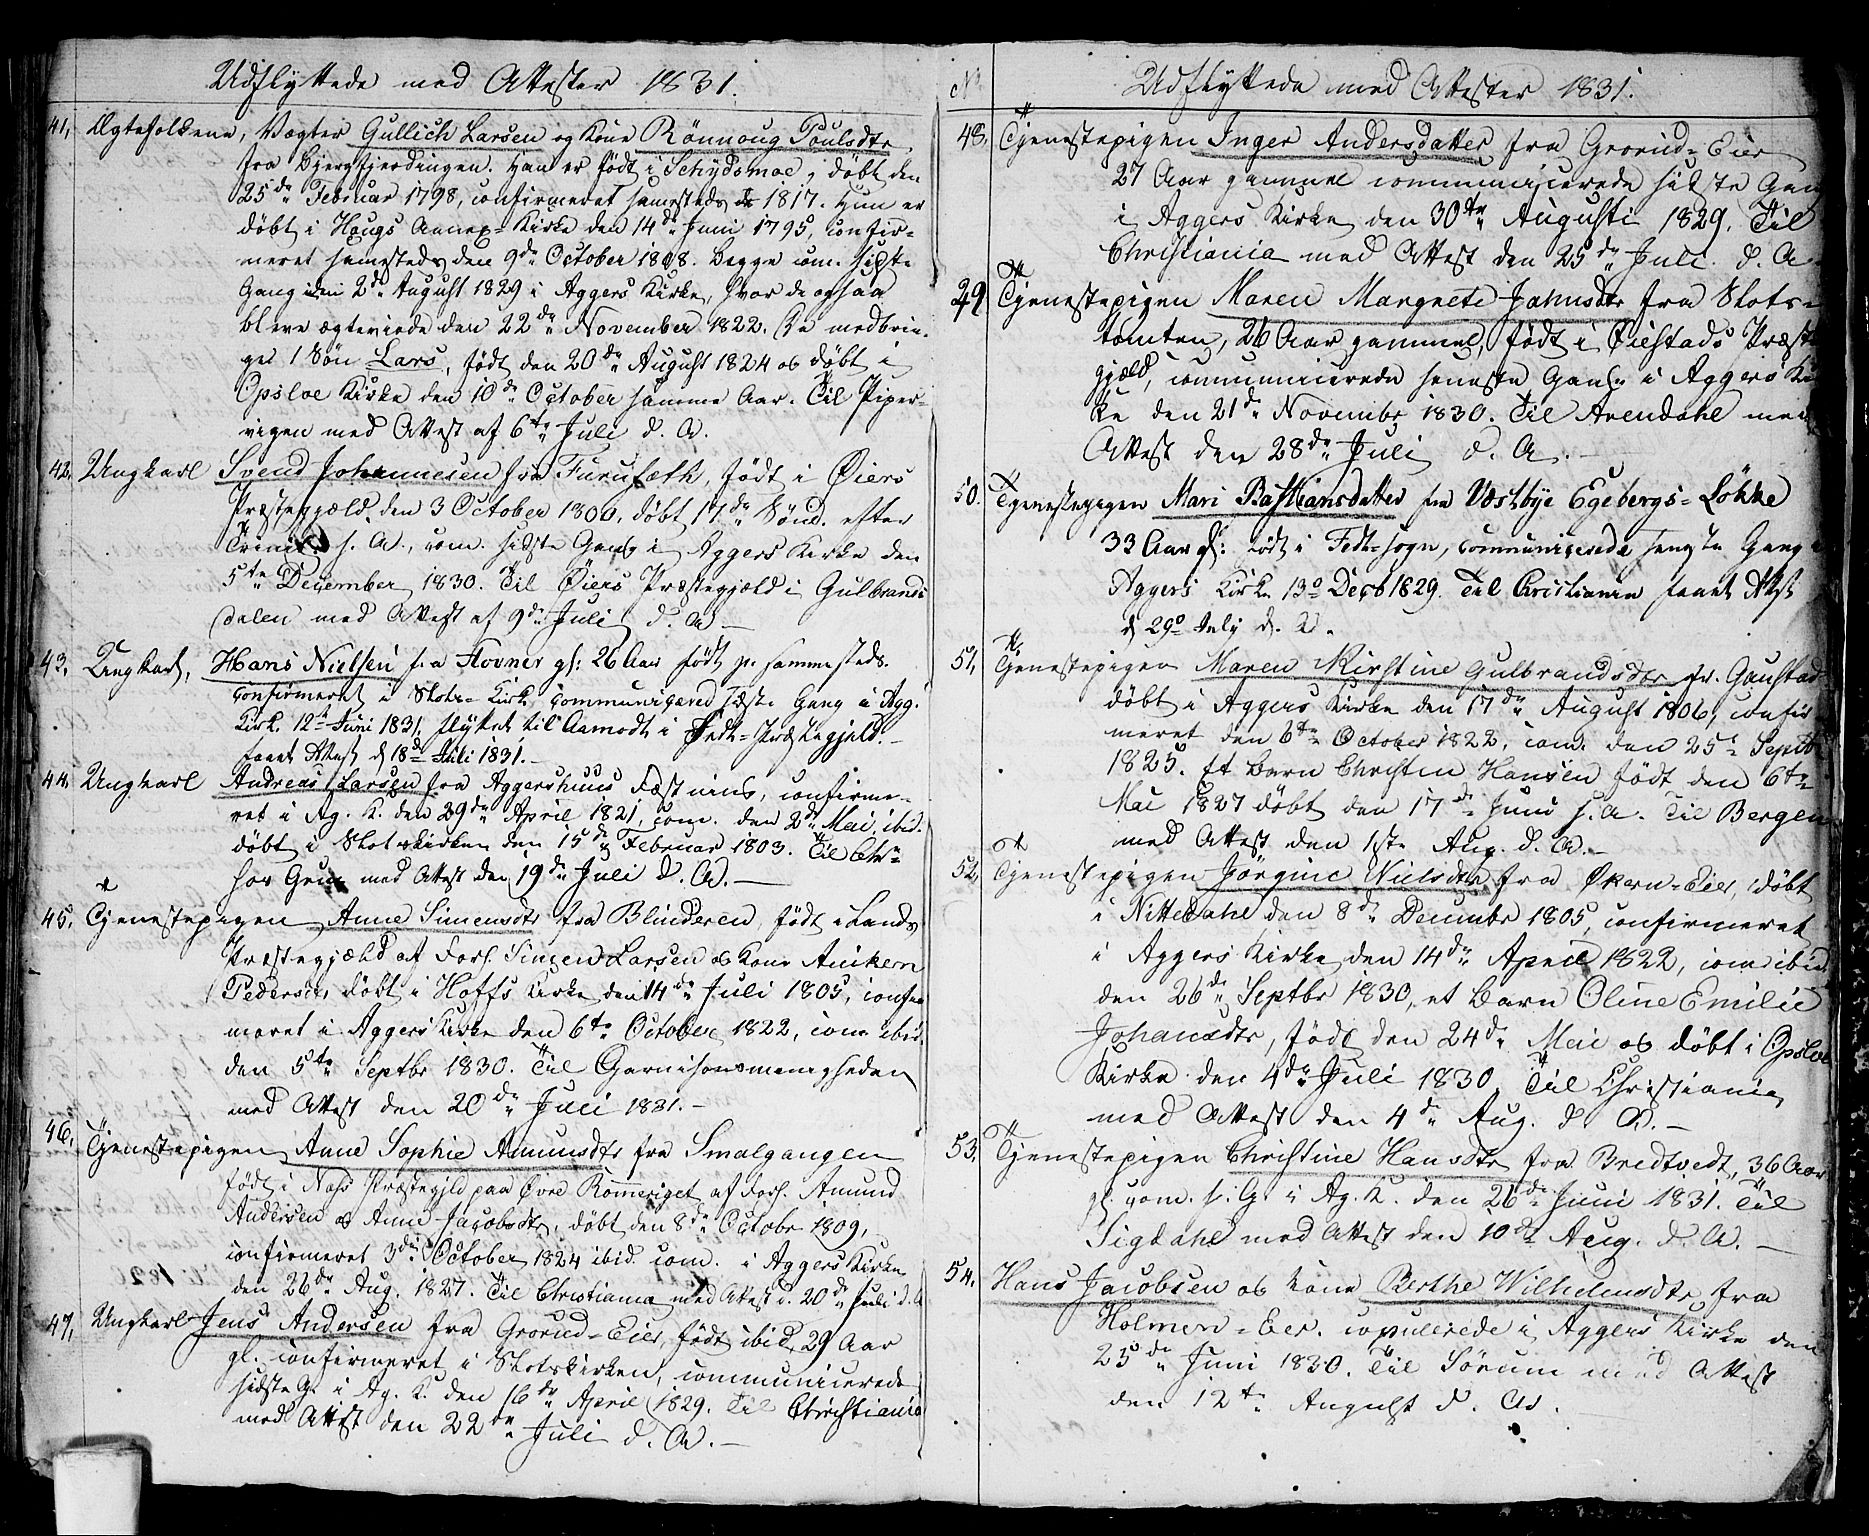 Udflyttede med Attester 1831.
41, Ægtefolkene, Vægter Gullich Larsen og Kone Rönnoug Poulsdtr,
fra Bjergfjerdingen. Han er født i Schydsmoe, døbt den
25de Februar 1798, confirmeret sammesteds 1817. Hun er
døbt i Hougs Annex-Kirke den 14de Juni 1795, confir-
meret samesteds den 9de October 1808. Begge com. sidste
Gang den 2de August 1829 i Aggers Kirke, hvor de ogsaa
bleve ægteviede den 22de November 1822. De medbrin-
ger 1 Søn Lars, født den 20de August 1824 og døbt i
Opsloe Kirke den 10de October samme Aar. Til Piper-
vigen med Attest af 6te Juli d. A.
42, Ungkarl Svend Johannesen fra Furuseth, født i Øiers
Præstegjæld den 3 October 1800, døbt 17de Sönd. efter
Trinit. s. A., com. sidste Gang i Aggers Kirke den
5te December 1830. Til Øiers Præstegjæld i Gulbrands
dalen med Attest af 9de Juli d. A.
43. Ungkarl, Hans Nielsen fra Hovner gl: 26 Aar født p. sammesteds.
confirmeret i Slots-Kirk, communicered sidste Gang i Agg.
Kirk. 12te Juni 1831, flyttet til Aamodt i Fedt-Præstegjeld.
taget Attest d 18de Juli 1831.
44. Ungkarl Andreas Larsen fra Aggershuus Fæstning, confirme-
ret i Ag. K. den 29de April 1821, com. den 2de Mai, ibid.
døbt i Slotskirken den 15de Februar 1803. Til
med Attest den 19de Juli d. A.
45, Tjenestepigen Anne Simensdtr fra Blinderen, født i Lands
Præstegjæld af For. Simen Larsen og Kone Anikern
Pedersdtr, døbt i Hoffs Kirke den 14de Juli 1805, confir
meret i Aggers Kirke den 6te October 1822, com ibid.
den 5te Septbr 1830. Til Garnisonsmenigheden
med Attest den 20de Juli 1831.
46, Tjenestepigen Anne Sophie Amunsdtr fra Smalgangen
født i Næs Præstegjld paa Øvre Romeriget af For. Amund
Andersen og Anne Jacobsdtr, døbt den 8de Octobr 1809,
confirmeret 3die October 1824 ibid. com. i Aggers Kirke
den 26de Aug. 1827. Til Christiania med Attest d. 20de Juli d. A
47, Ungkarl Jens Andersen fra Grorud-Eier, født ibid, 29 Aar
gl. confirmeret i Slotskirken, communicerede
sidste G. i Ag. K. den 16de April 1829. Til Christiania
med Attest den 22de Juli d. A.
No Udflyttede med Attester 1831.
48, Tjenestepigen Inger Andersdatter fra Grorud-Eier
27 Aar gammel communicerede sidste Gan
i Aggers Kirke den 30te Augusti 1829. Til
Christiania med Attest den 25de Juli d. A.
49, Tjenestepigen Maren Margrete Jahnsdtr fra Slots-
tomten, 26 Aar gammel, født i Øiestads Præst
gjæld, communicerede seneste Gang i Aggers Kir
ke den 21de Novembr 1830. Til Arendahl med
Attest den 28de Juli d. A.
50. Tjenestepigen Mari Bastiansdatter fra Vestbye Egebergs-Løkke
33 Aar gl: født i Fedt-sogn, communicerede seneste Gang
Aggers Kirke 13de Decb 1829. Til Christiania taget Attest
d 29de July d. A.
51, Tjenestepigen Maren Kirstine Gulbrandsdtr fr. Gaustad
døbt i Aggers Kirke den 17de August 1806, confir
meret den 6te October 1822, com. den 25de Septbr
1825. Et Barn Christen Hansen født den 6te
Mai 1827 døbt den 17de Juni s. A. Til Bergen
med Attest den 1ste Aug. d. A.
52, Tjenestepigen Jörgine Nielsdtr fra Økern-Eier, døbt
i Nittedahl den 8de Decembr 1805, confirmeret
i Aggers Kirke den 14de April 1822, com ibid.
den 26de Septbr 1830, et Barn Oline Emilie
Johansdtr, født den 24de Mai og døbt i Opsloe
Kirke den 4de Juli 1830. Til Christiania
med Attest den 4de Aug. d A.
53, Tjenestepigen Christine Hansdtr fra Bredtvedt, 36 Aar
gl. com. s. G. i Ag. K. den 26de Juni 1831. Til
Sigdahl med Attest den 10de Aug. d. A.
54, Hans Jacobsen og Kone Berthe Wilhelmsdtr, fra
Holmen-Eer. copulerede i Aggers Kirke den
25de Juni 1830. Til Sørum med Attest
den 12te August d. A.